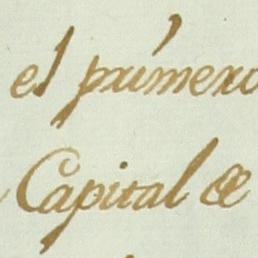 el primero
Capital de